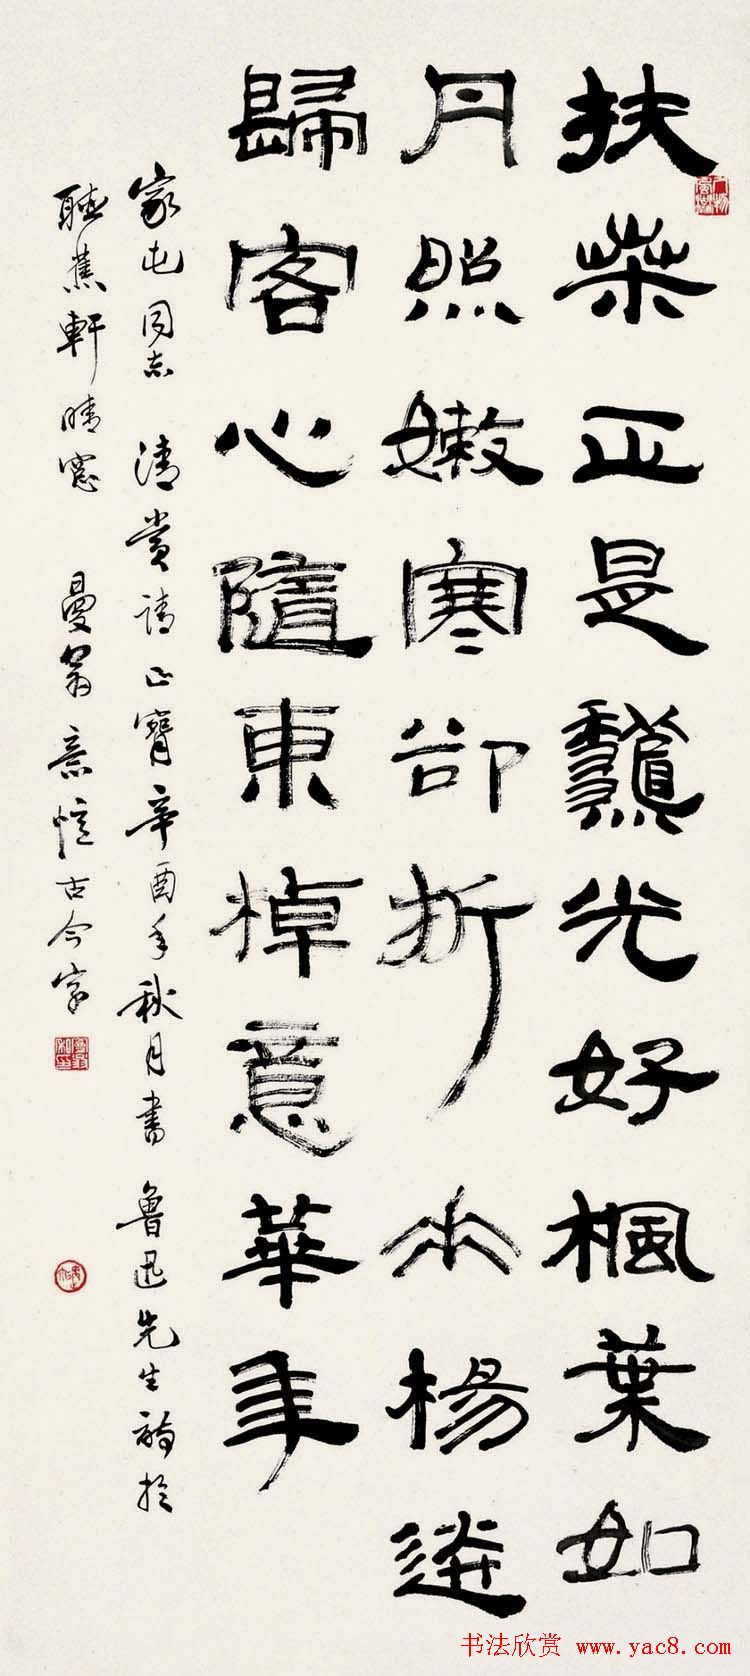 扶桒正是龝光好楓葉如
丹照嫩寒卻折𠂹楊送
歸客心隨東棹意華年
家屯同志 清賞請正 辛酉年秋月書 魯迅先生詩於
聽蕉軒晴窗 曼翁 古今字
书法欣赏 www.yac8.com